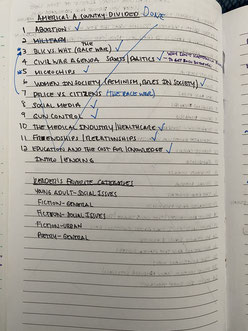 AMERICA! A COUNTRY DIVIDED DONE
1 ABORTION ✓
2 MILITARY
3 BLK VS. WHT (THE RACE WAR) ✓
4 CIVIL WAR AGENDA SPORTS/POLITICS ✓
5 MICROCHIPS ✓
6 WOMEN IN SOCIETY (FEMINISM, ROLES IN SOCIETY) ✓
7 POLICE VS CITIZENS (THE RACE WAR)
8 SOCIAL MEDIA ✓
9 GUN CONTROL ✓
10 THE MEDICAL INDUSTRY/HEALTHCARE ✓
11 FRIENDSHIPS/RELATIONSHIPS ✓
12 EDUCATION AND THE COST FOR KNOWLEDGE ✓
INTRO/ENDING
READER'S FAVORITE CATEGORIES
YOUNG ADULT-SOCIAL ISSUES
FICTION-GENERAL
FICTION-SOCIAL ISSUES
FICTION-URBAN
POETRY-GENERAL